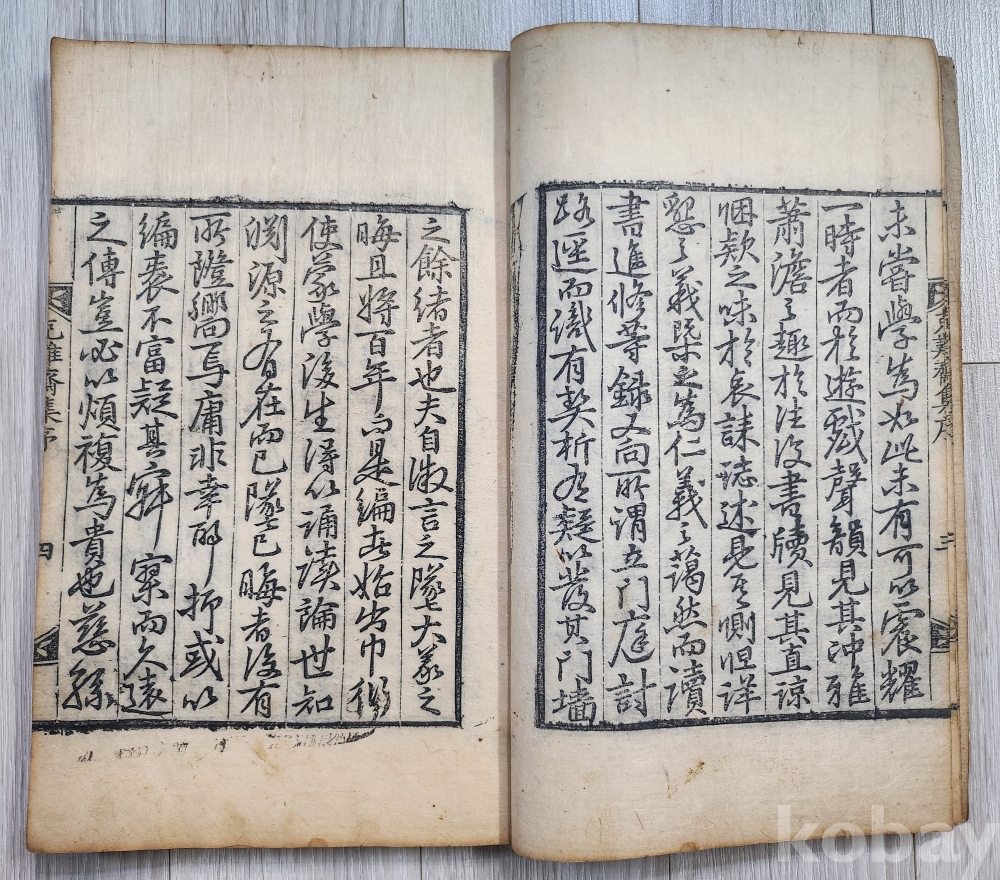 未嘗學爲如此未有可以震耀
一時者而於遊戱聲韻見其沖雅
蕭澹之趣於注復書牘見其直諒
悃款之味於哀誄誌述見其惻怛詳
懇之義槩之爲仁義之藹然而讀
書進修等錄又向所謂立門庭討
路逕而識有契析有疑以發其門墻
之餘緖者也夫自微言之墜大義之
晦且將百年而是編者始出巾衍
使蒙學後生得以誦讀論世知
淵源之有在而已墜已晦者復有
所隲嚮焉庸非幸耶 抑或以
編袠不富疑其 寂寥而久遠
之傳豈必以煩複爲貴也慈孫
克難齋集序 三
克難齋集序 四
kobay